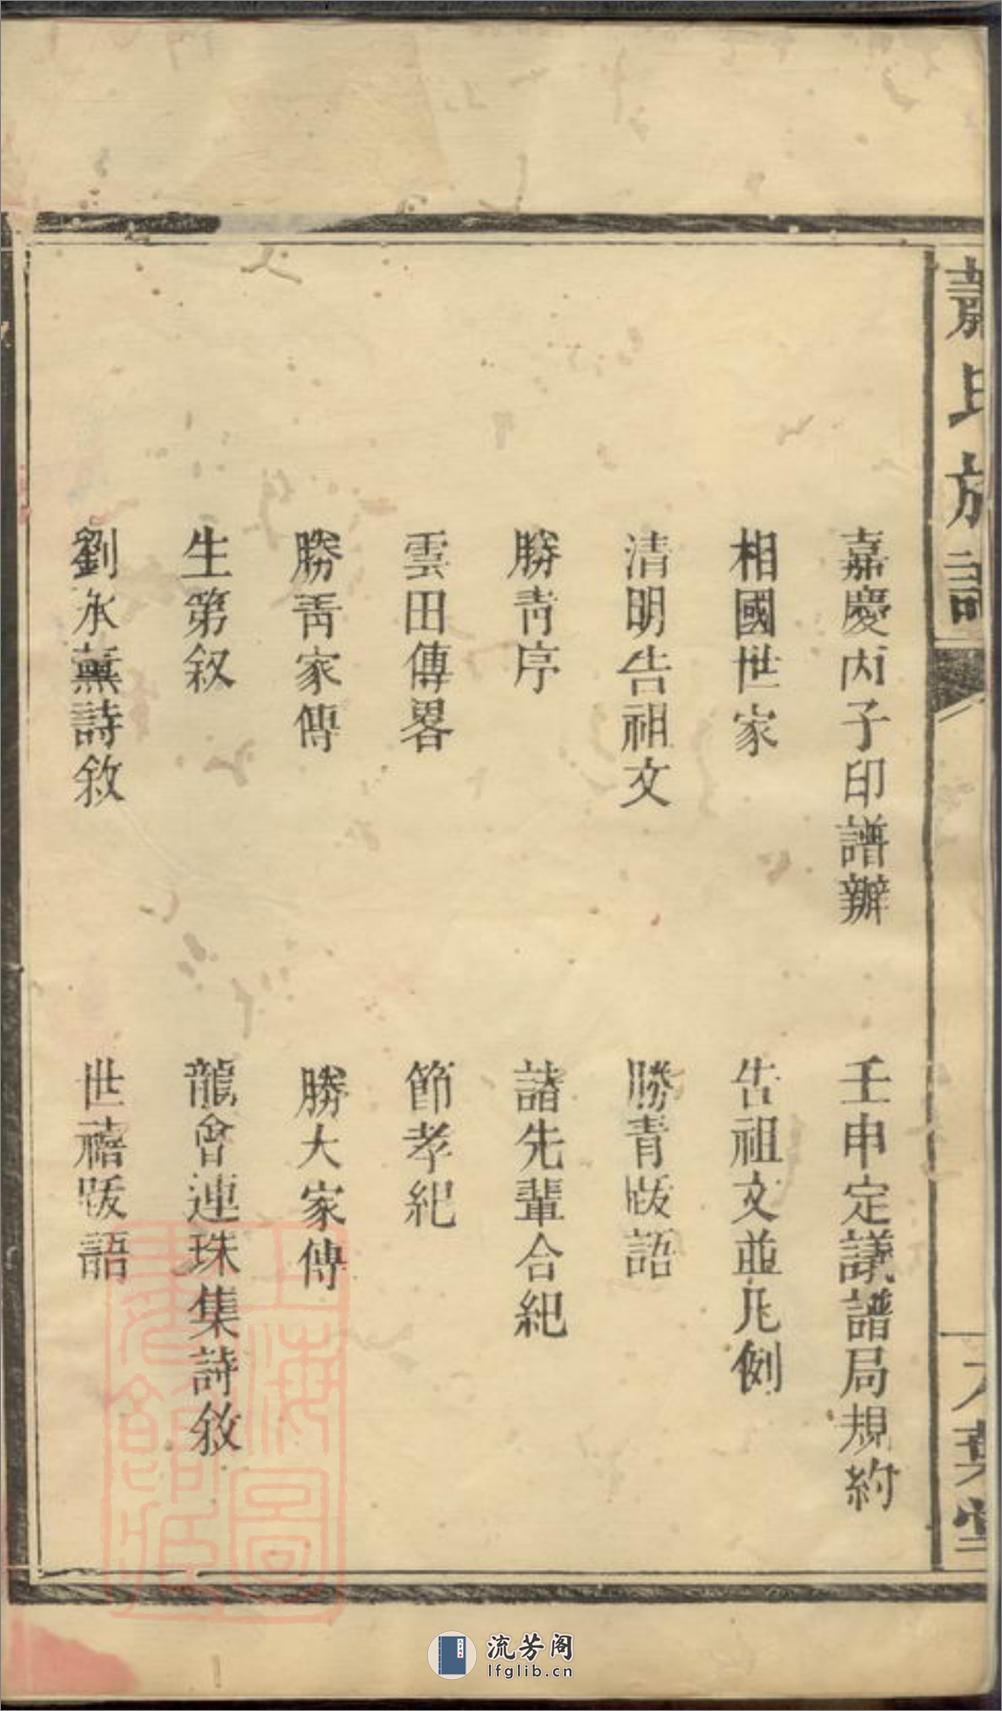 蕭氏族譜
嘉慶丙子印譜辦
壬申定議譜局規約
相國世家
告祖文並凡例
清明告祖文
勝青跋語
勝青序
諸先輩合紀
雲田傳畧
節孝紀
勝青家傳
勝大家傳
生第敘
龍會連珠集詩敘
劉永薰詩敘
世禧跋語
八葉堂
上海圖書館藏
流芳阁
lfglib.cn